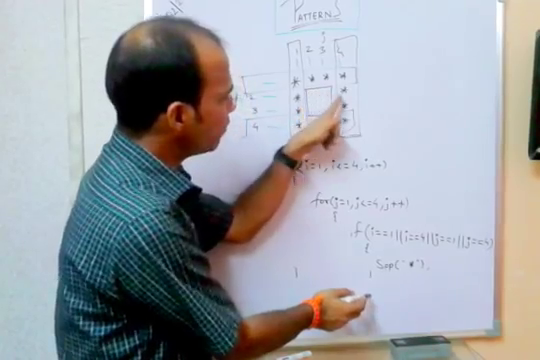 PATTERNS
j
1 2 3 4
* * * *
2 * *
3 * *
4 * *
(i=1, i<=4, i++)
{
for(j=1, j<=4, j++)
{
if(i==1||i==4||j==1||j==4)
{
Sop("*").